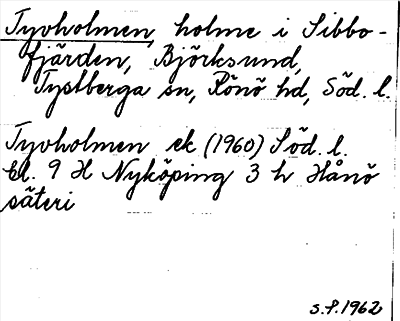 Tyvholmen, holme i Sibbo-
fjärden, Björksund,
Tystberga sn, Rönö hd, Söd. l.
Tyvholmen ek (1960) Söd. l.
Bl. 9 H Nyköping 3 h Hånö
säteri
S.P. 1962